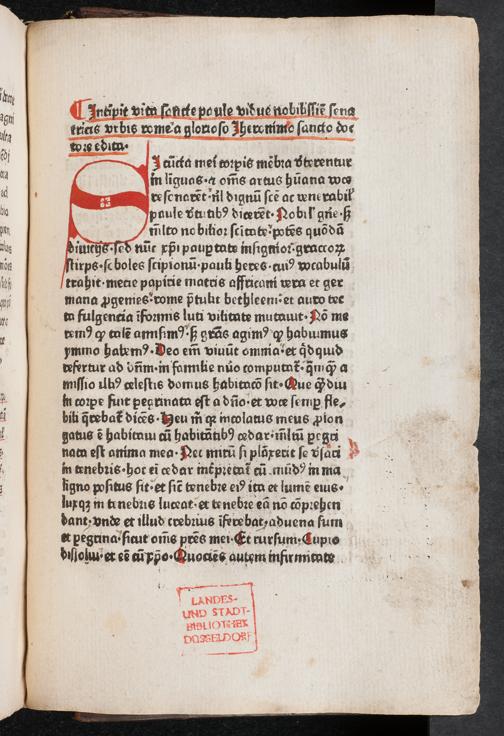 Incipit vita sancte paule vidue nobilissie sena
tricis vrbis rome a glorioso Iheronimo sancto doc
tore edita.
SI cūcta mei corpis mēbra v̄terentur
in liguas. ⁊ om̄s artus hūana voce
resonarēt. nil dignū scē ac venerabil'
paule v̄tutibꝰ dicerēt. Nobil' gn̄e. sꝫ
ml̄to nobilior scitate. potēs quōdā
diuicijs. sed nūc xp̄i paup̄tate insignior. graccoꝝ
stirps. soboles scipionū. pauli heres. cuiꝰ vocabulū
trahit. mecie papirie matris affricani vera et ger
mana ꝓgenies. rome p̄tulit bethleem. et auro tec
ta fulgencia īformis luti vilitate mutauit. Nō me
remꝰ ꝙ talē amisimꝰ. sꝫ grās agimꝰ ꝙ habuimus
ymmo habemꝰ. Deo em̄ viuūt omnia. et q̇dquid
refertur ad dn̄m. in familie nūo computat̄. quīqꝫ a
missio illiꝰ celestis domus habitacō sit. Que ꝙ̄diu
in corpe fuit peḡrinata est a dn̄o. et voce semꝑ fle
bili q̄rebat̄ dicēs. Heu m̄ qꝫ incolatus meus ꝓlon
gatus ē habitaui cū habitātibꝰ cedar. ml̄tū pegri
nata est anima mea. Nec mirū si plāxerit se v̄sari
in tenebris. hoc ei cedar int̄pretat̄. cū mūdꝰ in ma
ligno positus sit. et sic̄ tenebre eiꝰ ita et lumē eius.
luxqꝫ in tenebris luceat. et tenebre eā nō cōprehen
dant. vnde et illud crebrius īferebat. aduena sum
et pegrina. sicut om̄s pr̄es mei. Et rursum. Cupio
dissolui. et eē cū xp̄o. Quociēs autem infirmitate
LANDES-
UND STADT-
BIBLIOTHEK
DÜSSELDORF